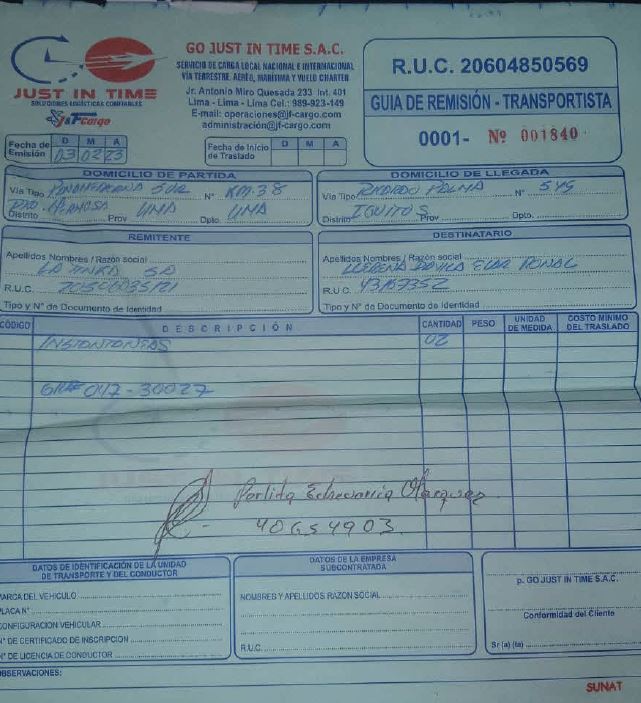 JUST IN TIME
SOLUCIONES LOGÍSTICAS CONFIABLES
J&F Cargo
GO JUST IN TIME S.A.C.
SERVICIO DE CARGA LOCAL NACIONAL E INTERNACIONAL
VÍA TERRESTRE, AEREO, MARÍTIMA Y VUELO CHARTER
Jr. Antonio Miro Quesada 233 Int. 401
Lima - Lima - Lima Cel.: 989-923-149
E-mail: operaciones@jf-cargo.com
administración@jf-cargo.com
R.U.C. 20604850569
GUIA DE REMISIÓN - TRANSPORTISTA
0001- Nº 001840
Fecha de Emisión D M A
03 02 23
Fecha de Inicio de Traslado D M A
DOMICILIO DE PARTIDA
Vía Tipo PANAMERICANA SUR Nº KM.38
Distrito HERMOSA Prov LIMA Dpto. LIMA
DOMICILIO DE LLEGADA
Vía Tipo RICARDO PALMA Nº 545
Distrito IQUITOS Prov Dpto.
REMITENTE
Apellidos Nombres / Razón social
SA
R.U.C.
Tipo y N° de Documento de Identidad
DESTINATARIO
Apellidos Nombres / Razón social
LLERENA DAVILA
R.U.C. 43167352
Tipo y N° de Documento de Identidad
CÓDIGO DESCRIPCIÓN CANTIDAD PESO UNIDAD DE MEDIDA COSTO MINIMO DEL TRASLADO
02
047-30027
Echevarria Marquez
40654903
DATOS DE IDENTIFICACIÓN DE LA UNIDAD
DE TRANSPORTE Y DEL CONDUCTOR
MARCA DEL VEHICULO
PLACA N°
CONFIGURACION VEHICULAR
N° DE CERTIFICADO DE INSCRIPCION
N° DE LICENCIA DE CONDUCTOR
DATOS DE LA EMPRESA
SUBCONTRATADA
NOMBRES Y APELLIDOS RAZON SOCIAL
R.U.C.
p. GO JUST IN TIME S.A.C.
Conformidad del Cliente
Sr (a) (ta)
OBSERVACIONES:
SUNAT